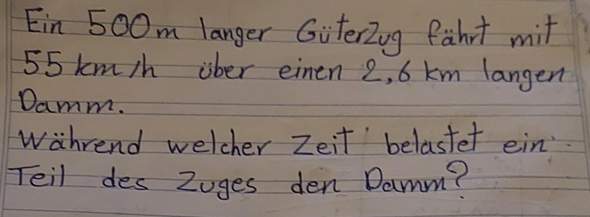 Ein 500m langer Güterzug fährt mit
55 km/h über einen 2,6 km langen
Damm.
Während welcher Zeit belastet ein
Teil des Zuges den Damm?